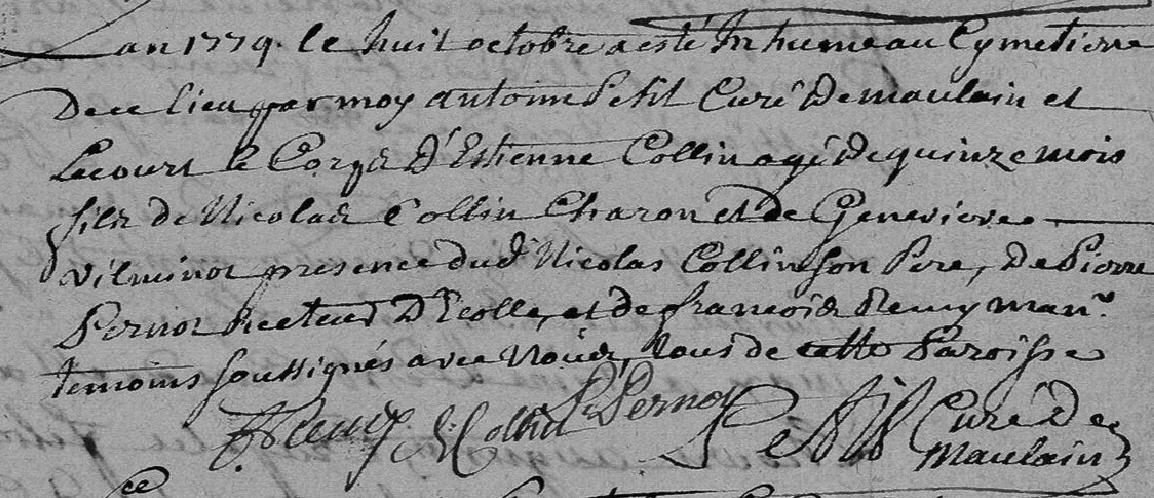 Lan 1779. le huit octobre a esté Inhumé au Cymetierre
De ce lieu par moy antoine Petit Curé De maulain et
Lecourt le Corps D'Estienne Collin agé De quinze mois
fils de Nicolas Collin Charon et de Genevieve
vilminot presence dud Nicolas Collin son Pere, De Pierre
Pernot Recteur D'Ecolle, et de francois Remy man.
temoins soussignés avec Nous, tous de cette Paroisse
F Remy N Collin P Pernot Petit Curé De
Maulain